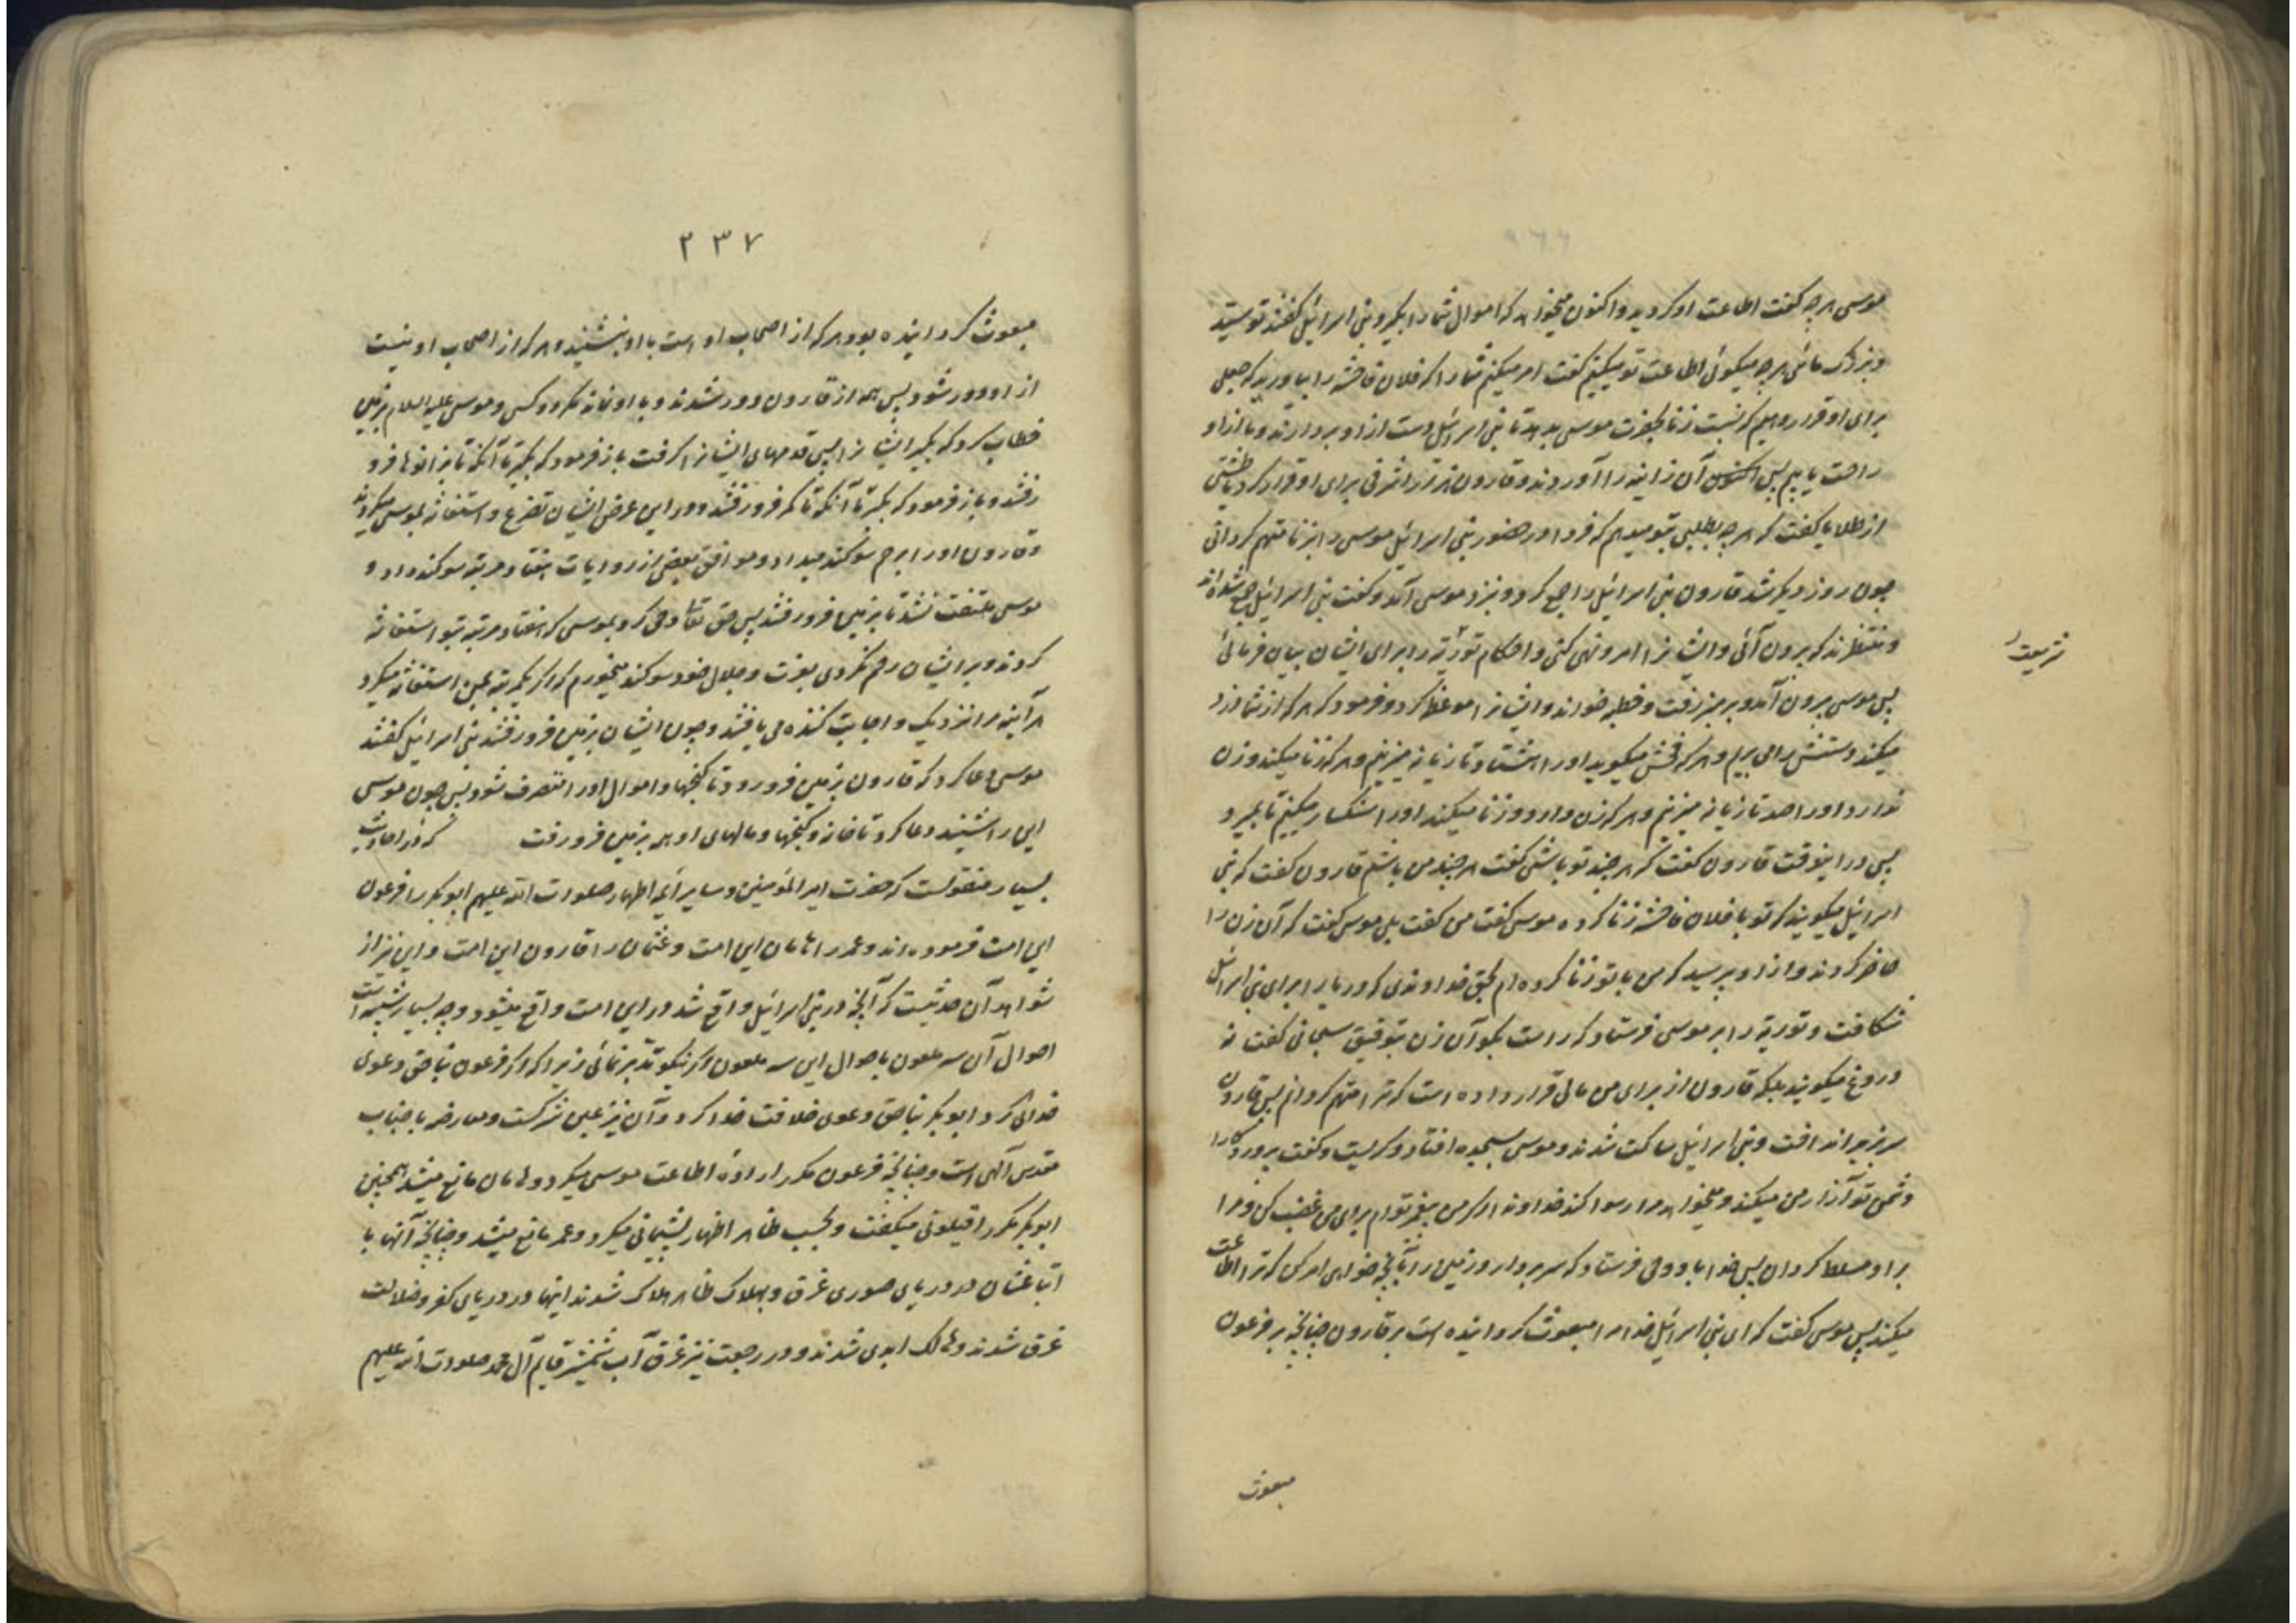 موسی هرچه گفت اطاعت او کردید و اکنون میخواهد که اموال شما را بگیرد بنی اسرائیل گفتند تو سید
و بزرگ مائی هرچه میگوئی اطاعت تو میکنیم گفت امر میکنم شما را که فلان فاحشه را بیاورید که جعلی
برای او قرار دهیم که نسبت زنا بحضرت موسی بدهد تا بنی اسرائیل دست از او بردارند و ما از او
راحت یابیم پس آن زانیه را آوردند و قارون هزار اشرفی برای او قرار کرد یا طشتی
از طلا یا گفت که هرچه بطلبی بتو میدهم که فردا در حضور بنی اسرائیل موسی را بزنا متهم گردانی
چون روز دیگر شد قارون بنی اسرائیل را جمع کرد و نزد موسی آمد و گفت بنی اسرائیل جمع شده‌اند
و منتظرند که بیرون آئی و ایشانرا امر و نهی کنی و احکام توریة را برای ایشان بیان فرمائی
شریعت
پس موسی بیرون آمد و بر منبر رفت و خطبه خواند و ایشانرا موعظه کرد و فرمود که هر که از شما دزدی
میکند دستش را می بریم و هر که فحش میگوید او را هشتاد تازیانه میزنیم و هر که زنا میکند و زن
ندارد او را صد تازیانه میزنیم و هر که زن دارد و زنا میکند او را سنگسار میکنیم تا بمیرد
پس در اینوقت قارون گفت که هر چند تو باشی گفت هر چند من باشم قارون گفت که بنی
اسرائیل میگویند که تو با فلان فاحشه زنا کرده موسی گفت من گفت بلی موسی گفت که آن زن را
حاضر کردند و از او پرسید که من با تو زنا کرده‌ام بحق خداوندی که دریا را برای بنی اسرائیل
شکافت و توریة را بر موسی فرستاد که راست بگو آن زن بتوفیق سبحانی گفت نه
دروغ میگویند بلکه قارون از برای من مالی قرار داده است که ترا متهم گردانم پس قارون
سر بزیر انداخت و بنی اسرائیل ساکت شدند و موسی بسجده افتاد و گریست و گفت پروردگارا
دشمن تو آزار من میکند و میخواهد مرا رسوا کند خداوندا اگر من پیغمبر توام برای من غضب کن و مرا
بر او مسلط گردان پس خدا باو وحی فرستاد که سر بردار و زمین را بآنچه خواهی امر کن که ترا اطاعت
میکند پس موسی گفت که ای بنی اسرائیل خدا مرا مبعوث گردانیده است بر قارون چنانچه بر فرعون
مبعوث
۲۳۷
مبعوث گردانیده بود هر که از اصحاب او است با او بنشیند و هر که از اصحاب او نیست
از او دور شود پس همه از قارون دور شدند و با او نماند مگر دو کس و موسی علیه السلام بزمین
خطاب کرد که بگیر ایشانرا پس قدمهای ایشانرا گرفت باز فرمود که بگیر تا آنکه تا بزانوها فرو
رفتند و باز فرمود که بگیر تا آنکه تا کمر فرو رفتند و در این عرض ایشان تضرع و استغاثه بموسی میکردند
و قارون او را برحم سوگند میداد و موافق بعضی از روایات هفتاد مرتبه سوگند داد و
موسی ملتفت نشد تا بزمین فرو رفتند پس حق تعالی وحی کرد بموسی که هفتاد مرتبه بتو استغاثه
کردند و بر ایشان رحم نکردی بعزت و جلال خود سوگند میخورم که اگر یکمرتبه بمن استغاثه میکرد
هر آینه مرا نزدیک و اجابت کننده می یافتند و چون ایشان بزمین فرو رفتند بنی اسرائیل گفتند
موسی دعا کرد که قارون بزمین فرو رود تا گنجها و اموال او را متصرف شود پس چون موسی
این را شنید دعا کرد تا خانه و گنجها و مالهای او همه بزمین فرو رفت که در احادیث
بسیار منقولست که حضرت امیر المؤمنین و سایر ائمه اطهار صلوات الله علیهم ابوبکر را فرعون
این امت فرموده‌اند و عمر را هامان این امت و عثمان را قارون این امت و این نیز از
شواهد آن حدیثیست که آنچه در بنی اسرائیل واقع شد در این امت واقع میشود و چه بسیار شبیه است
احوال آن سه ملعون باحوال این سه ملعون اگر نیکو تدبر نمائی زیرا که اگر فرعون بناحق دعوی
خدائی کرد ابوبکر بناحق دعوی خلافت خدا کرد و آن نیز عین شرکست و معارضه با جناب
مقدس الهی است و چنانچه فرعون مکرر اراده اطاعت موسی میکرد و هامان مانع میشد همچنین
ابوبکر مکرر اقیلونی میگفت و بحسب ظاهر اظهار پشیمانی میکرد و عمر مانع میشد و چنانچه آنها با
اتباعشان در دریای صوری غرق و بهلاک ظاهر هلاک شدند اینها در دریای کفر و ضلالت
غرق شدند و هالک ابدی شدند و در رجعت نیز غرق آب شمشیر قایم آل محمد صلوات الله علیهم